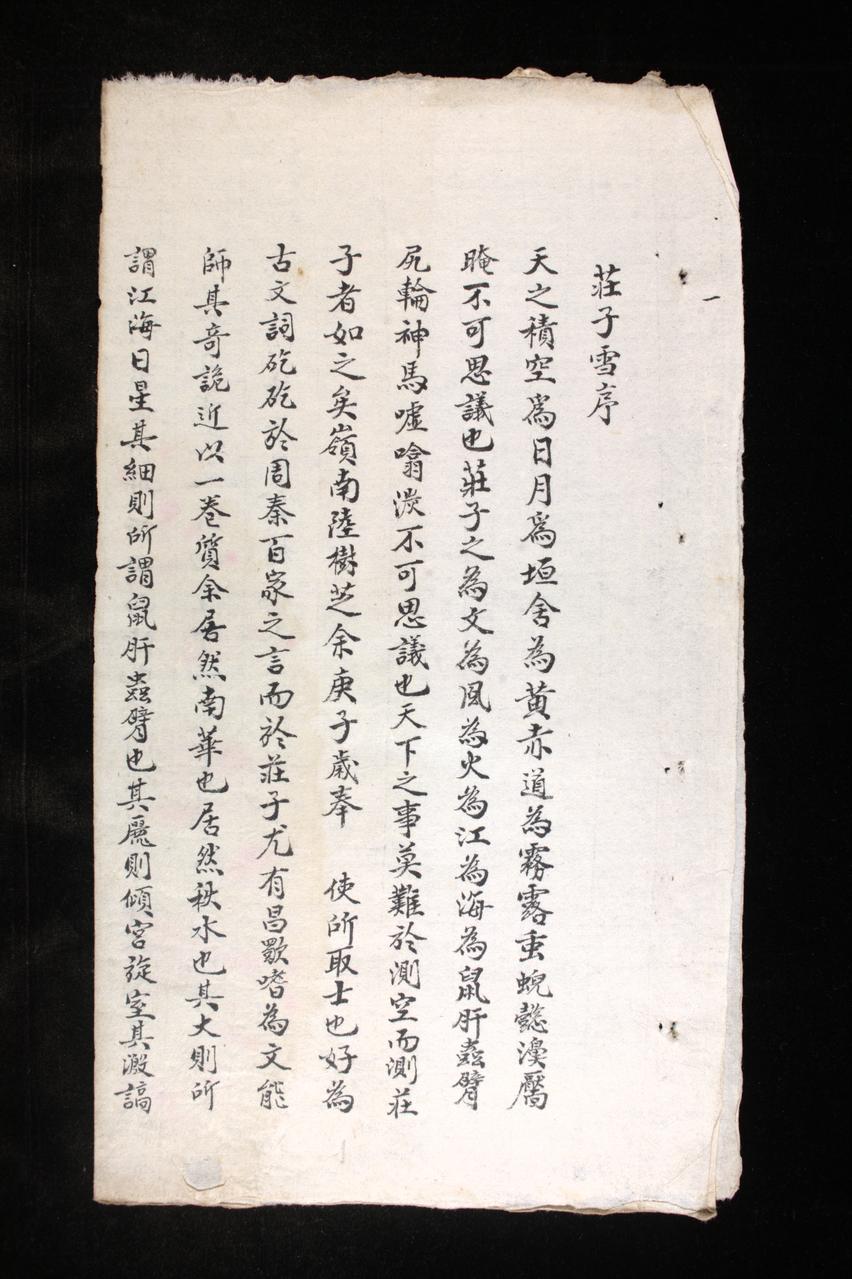 一
莊子雪序
天之積空爲日月爲垣舍為黃赤道為霧露虫蜺懿濩靨
晻不可思議也莊子之為文為風為火為江為海為鼠肝蟲臂
尻輪神馬噓噏淡不可思議也天下之事莫難於測空而測莊
子者如之矣嶺南陸樹芝余庚子歲奉 使所取士也好為
古文詞矻矻於周秦百家之言而於莊子尤有昌歜嗜為文能
師其奇詭近以一卷質余居然南華也居然秋水也其大則所
謂江海日星其細則所謂鼠肝蟲臂也其麗則傾宮旋室其激謞